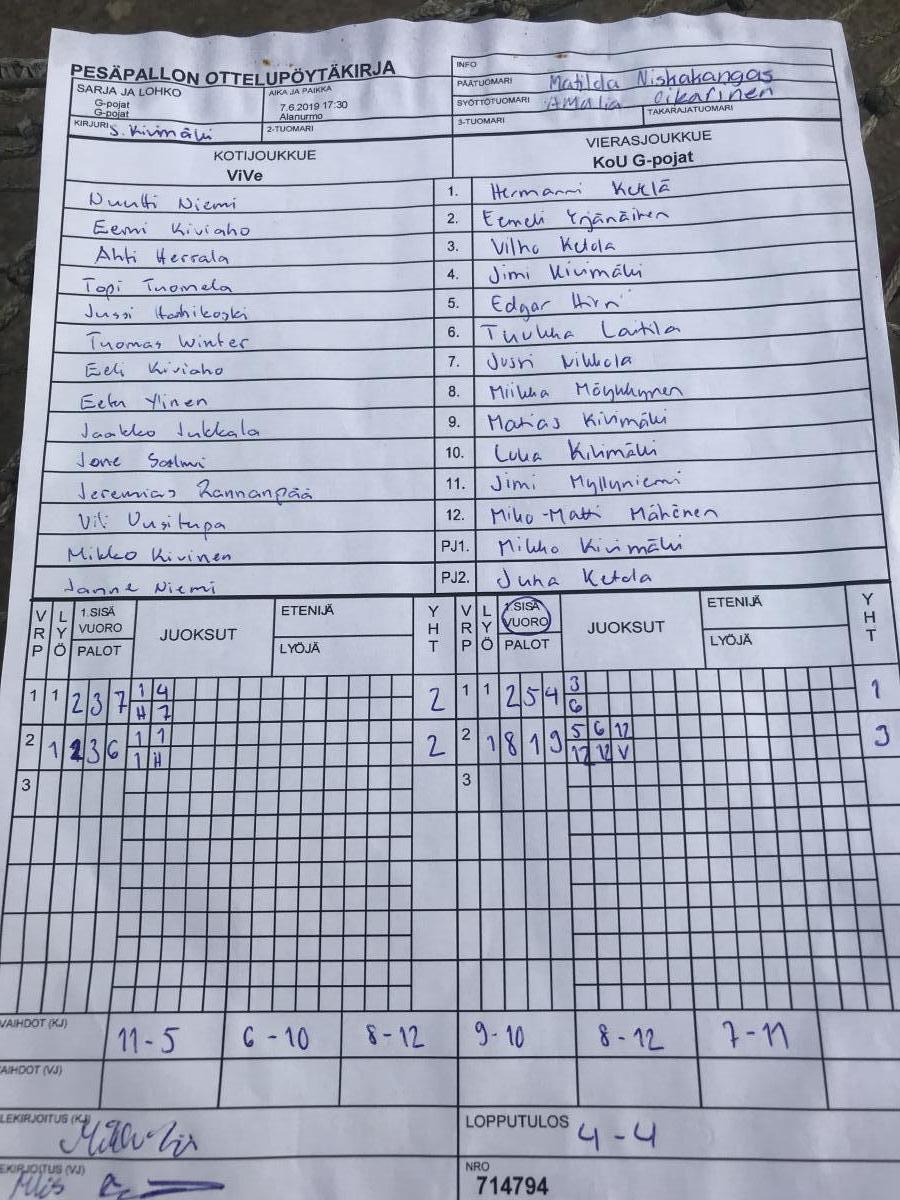 PESÄPALLON OTTELUPÖYTÄKIRJA
INFO
SARJA JA LOHKO
G-pojat
G-pojat
AIKA JA PAIKKA
7.6.2019 17:30
Alanurmo
PÄÄTUOMARI Matilda Niskakangas
SYÖTTÖTUOMARI Amalia Oikarinen
KIRJURI S. Kivimäki
2-TUOMARI
3-TUOMARI
TAKARAJATUOMARI
KOTIJOUKKUE
ViVe
VIERASJOUKKUE
KoU G-pojat
Nuutti Niemi 1. Hermanni Ketelä
Eemi Kiviaho 2. Eemeli Yrjänäinen
Ahti Herrala 3. Vilho Ketola
Topi Tuomela 4. Jimi Kivimäki
Jussi 5. Edgar Hirvi
Tuomas Winter 6. Tuukka Laitila
Eeli Kiviaho 7. Jussi Nikkola
Eetu Ylinen 8. Miikka Möykkynen
Jaakko Jukkala 9. Matias Kivimäki
Jone Salmi 10. Luka Kivimäki
Jeremias Rannanpää 11. Jimi Myllyniemi
Vili Uusitupa 12. Miko-Matti Mähönen
Mikko Kivinen PJ1. Mikko Kivimäki
Janne Niemi PJ2. Juha Ketola
VRP LYÖ 1.SISÄ VUORO PALOT JUOKSUT ETENIJÄ LYÖJÄ YHT VRP LYÖ 1.SISÄ VUORO PALOT JUOKSUT ETENIJÄ LYÖJÄ YHT
1 1 2 3 7 1 4 2 1 1 2 5 4 3 1
H 7 6
2 1 2 3 6 1 1 2 2 1 8 1 9 5 6 12 3
1 H 12 12 V
3 3
VAIHDOT (KJ) 11-5 6-10 8-12 9-10 8-12 7-11
AIHDOT (VJ)
LEKIRJOITUS (KJ)
LOPPUTULOS 4-4
EKIRJOITUS (VJ)
NRO
714794